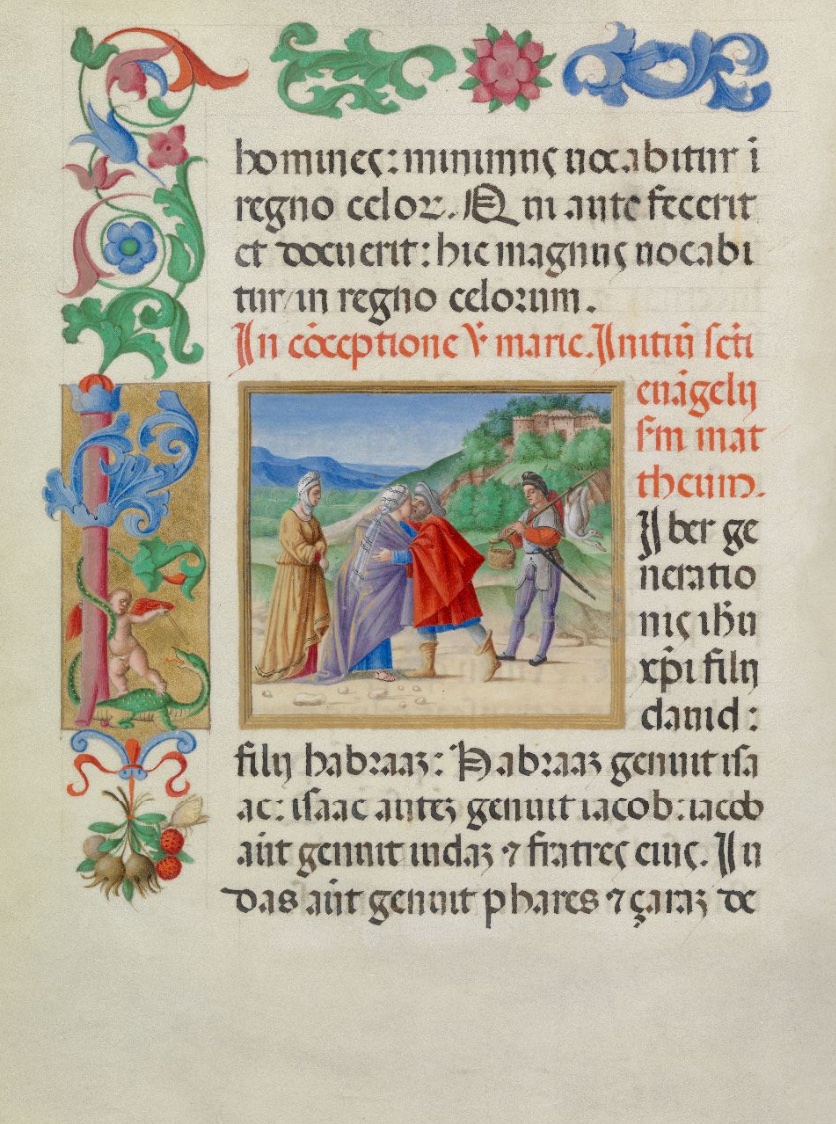 homines: minimus vocabitur ī
regno celoꝝ. Qui ante fecerit
et docuerit: hic magnus vocabi
tur in regno celorum.
In cōceptione V̄ marie. Initiū scti
evāgelij
sm̄ mat
theum.
Liber ge
neratio
nis ihū
xp̄i filij
david:
filij habraaʒ: Habraaʒ genuit isa
ac: isaac auteʒ genuit iacob: iacob
aūt genuit iudaʒ ⁊ fratres eius. Iu
das aūt genuit phares ⁊ çaraʒ de